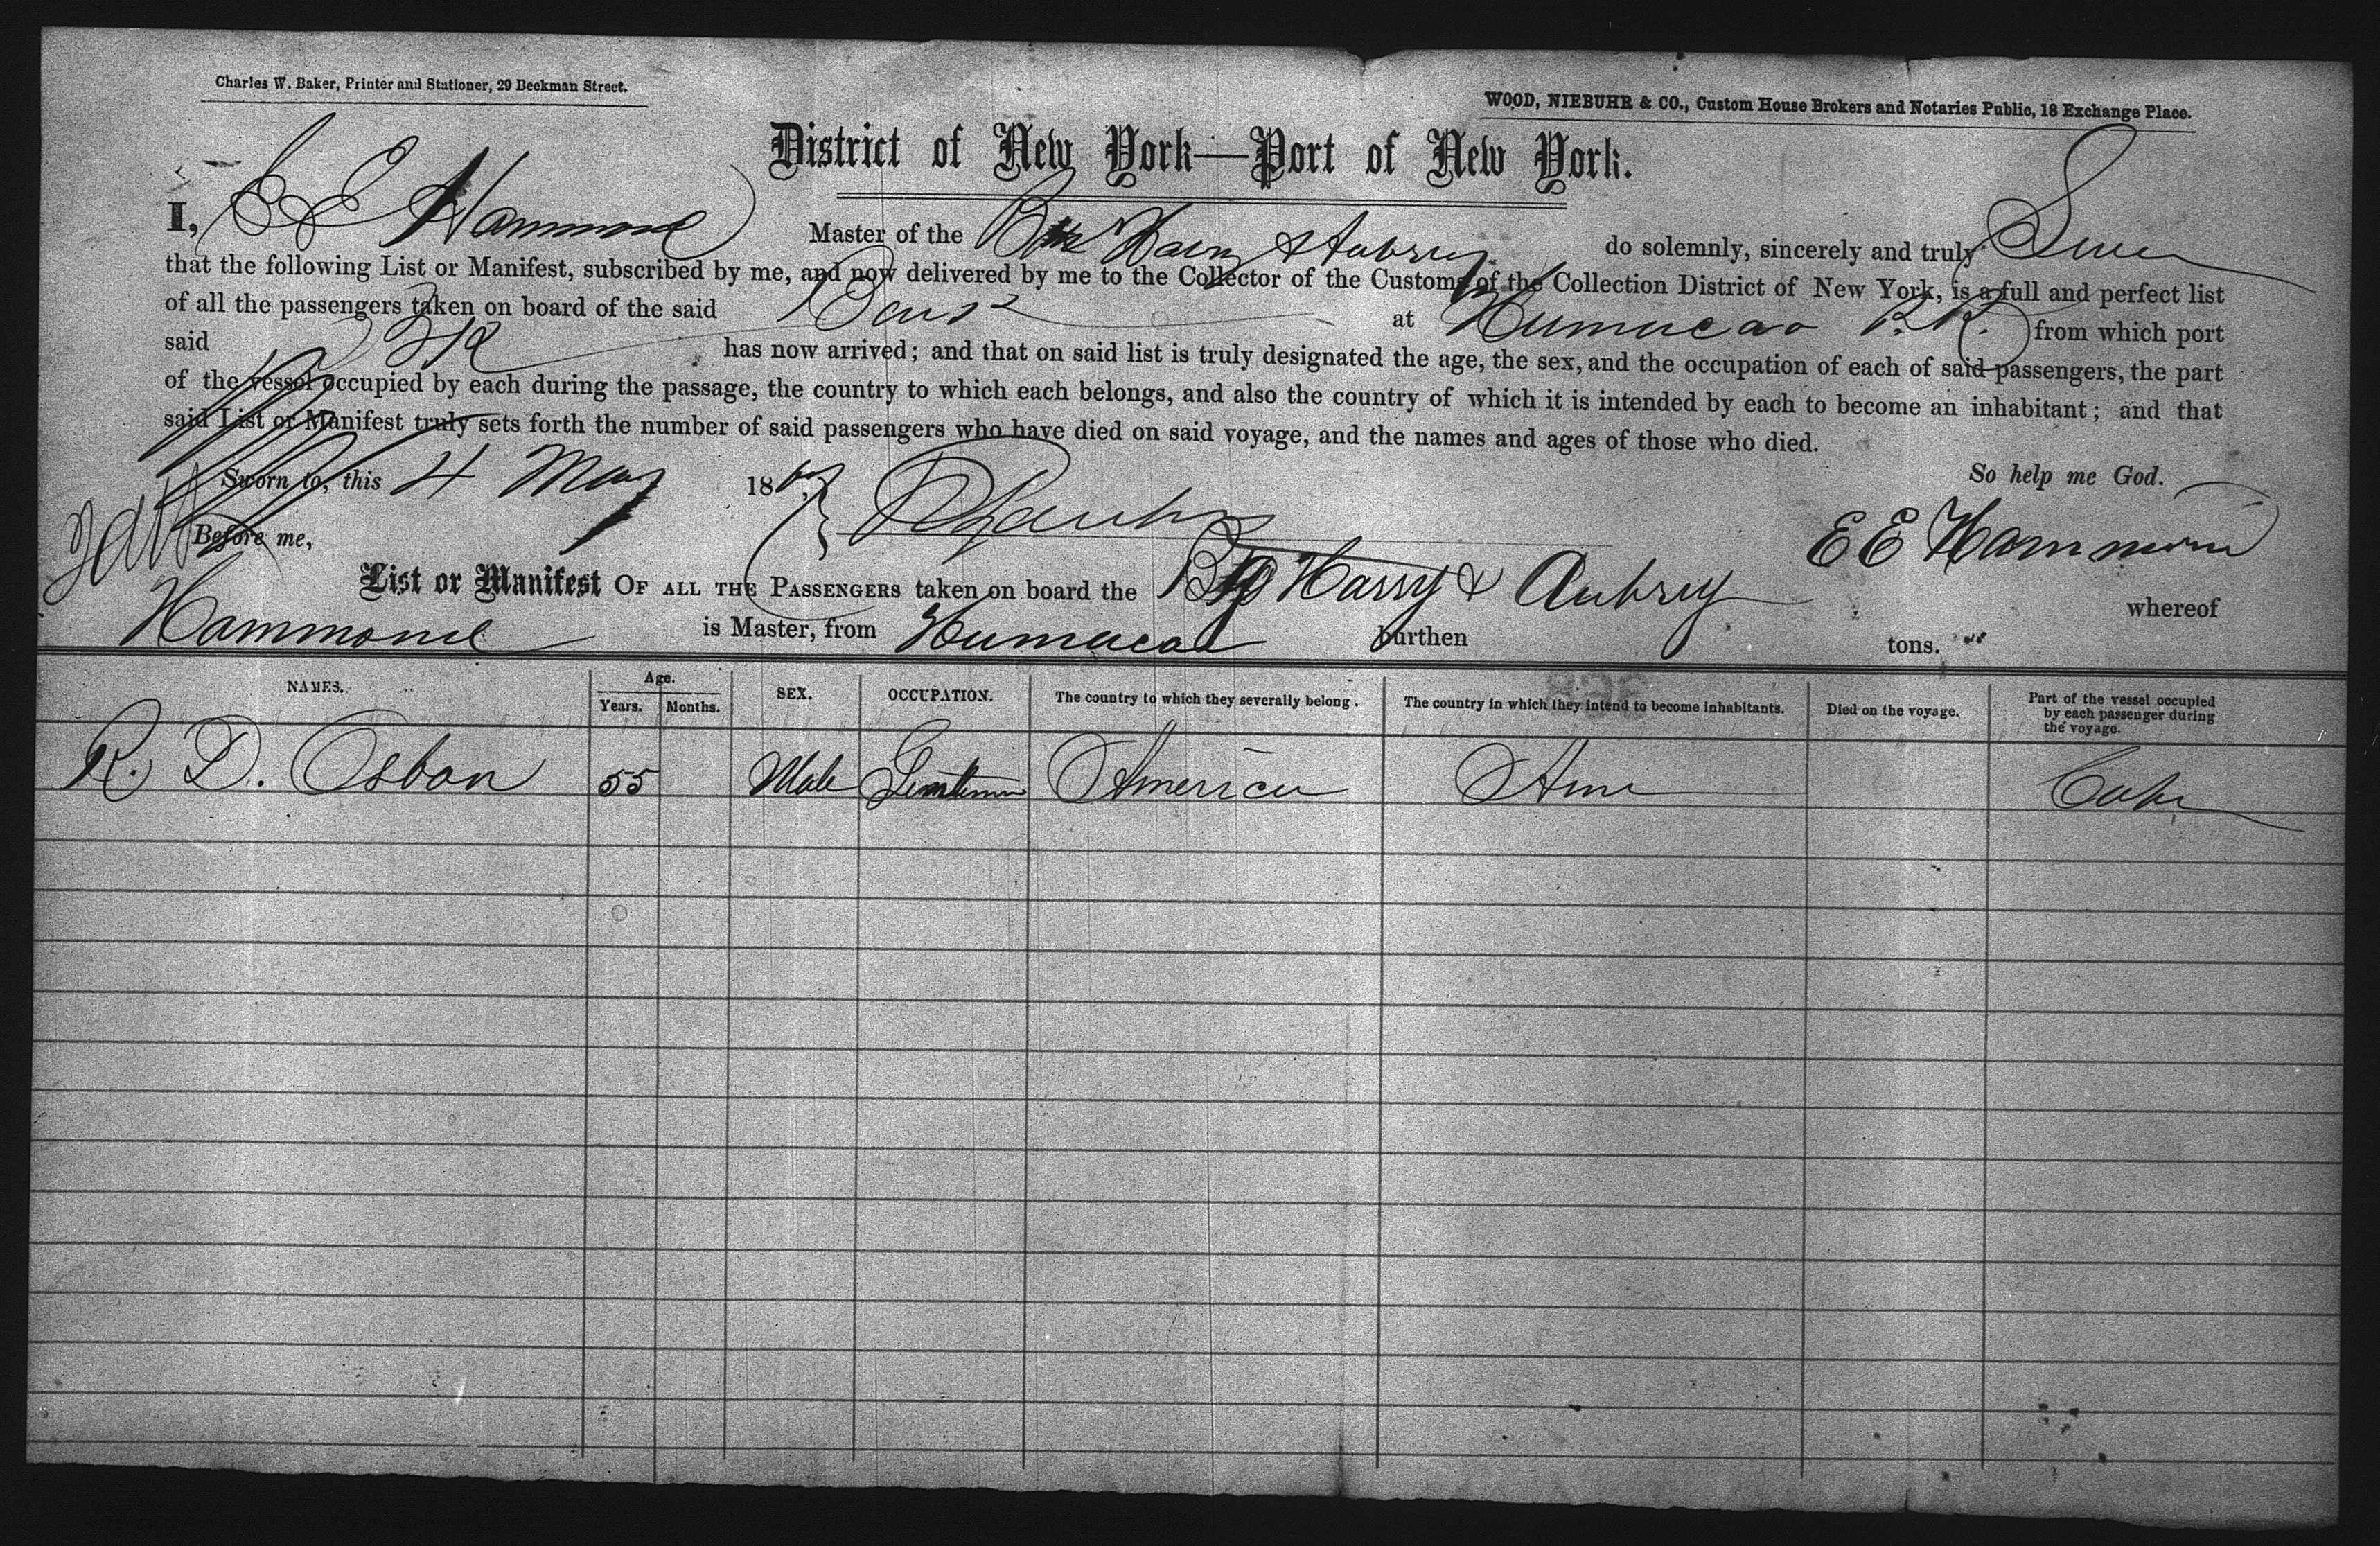 Charles W. Baker, Printer and Stationer, 29 Beekman Street.
WOOD, NIEBUHR & CO., Custom House Brokers and Notaries Public, 18 Exchange Place.
District of New York—Port of New York.
I, E E Hammond Master of the Harry & Aubrey do solemnly, sincerely and truly Swear
that the following List or Manifest, subscribed by me, and now delivered by me to the Collector of the Customs of the Collection District of New York, is a full and perfect list
of all the passengers taken on board of the said at Humacao P.R. from which port
said has now arrived; and that on said list is truly designated the age, the sex, and the occupation of each of said passengers, the part
of the vessel occupied by each during the passage, the country to which each belongs, and also the country of which it is intended by each to become an inhabitant; and that
said List or Manifest truly sets forth the number of said passengers who have died on said voyage, and the names and ages of those who died.
So help me God.
Sworn to, this 4 May 186
Before me,
E E Hammond
List or Manifest OF ALL THE PASSENGERS taken on board the Harry & Aubrey whereof
Hammond is Master, from Humacao burthen tons.
NAMES. Age. Years. Months. SEX. OCCUPATION. The country to which they severally belong. The country in which they intend to become inhabitants. Died on the voyage. Part of the vessel occupied by each passenger during the voyage.
R. D. Osbon 55 Male Gentleman America Ame